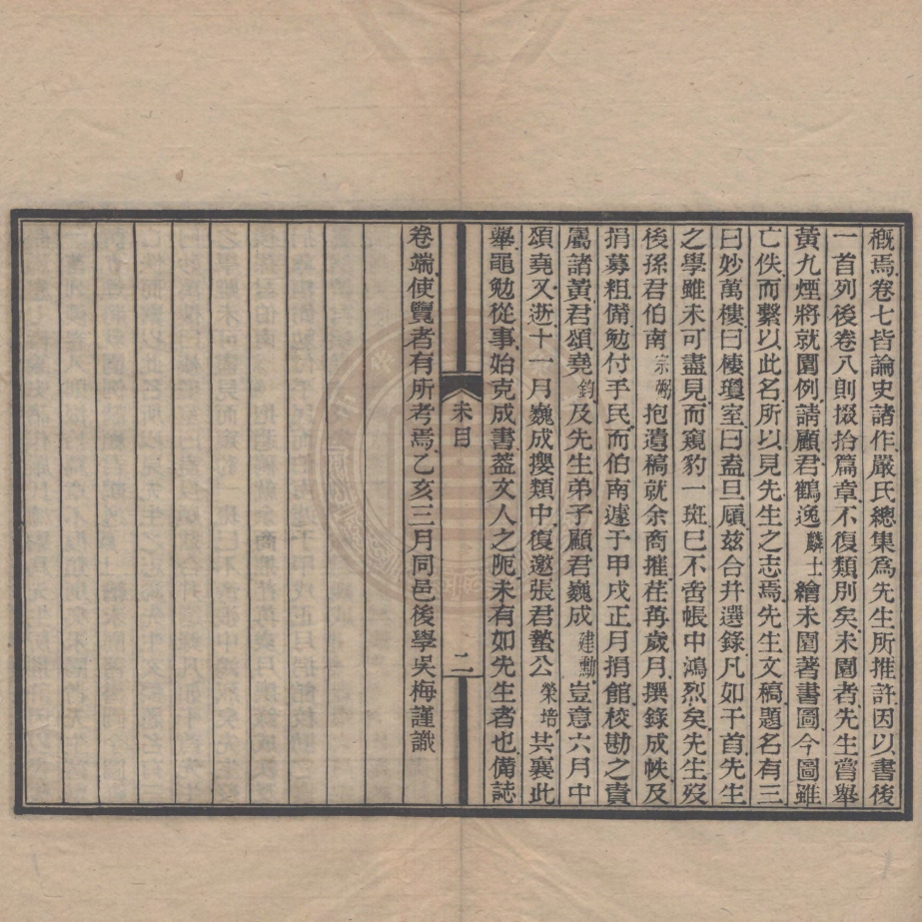 概焉卷七皆論史諸作嚴氏總集爲先生所推許因以書後
一首列後卷八則掇拾篇章不復類別矣未園者先生嘗舉
黃九煙將就園例請顧君鶴逸麟士繪未園著書圖今圖雖
亡佚而繫以此名所以見先生之志焉先生文稿題名有三
曰妙萬樓曰棲瓊室曰盍旦廎兹合幷選錄凡如干首先生
之學雖未可盡見而窺豹一斑已不啻帳中鴻烈矣先生歿
後孫君伯南宗弼抱遺稿就余商推荏苒歲月撰錄成帙及
捐募粗備勉付手民而伯南遽于甲戌正月捐館校勘之責
屬諸黃君頌堯鈞及先生弟子顧君巍成建勳豈意六月中
頌堯又逝十一月巍成攖類中復邀張君蟄公榮培共襄此
舉黽勉從事始克成書蓋文人之阨未有如先生者也備誌
卷端使覽者有所考焉乙亥三月同邑後學吳梅謹識
未目
二